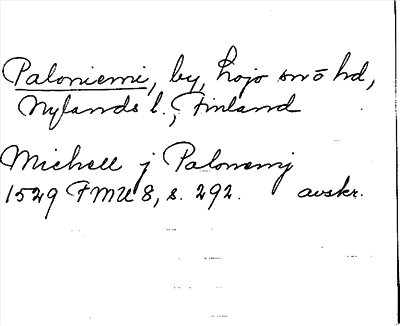 Paloniemi, by, Lojo snō hd,
Nylands l., Finland
Michell j Palonemj
1529 FMU 8, s. 292. avskr.